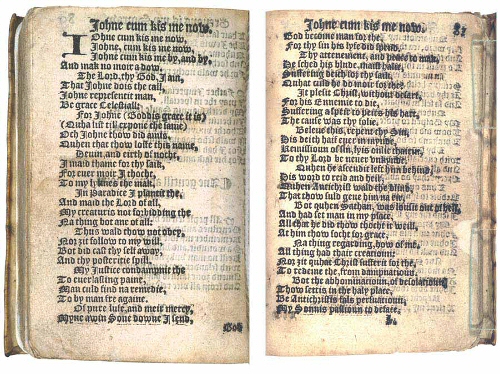 Johne cum kis me now.
IOhne cum kis me now,
Johne, cum kis me now,
Johne cum kis me by, and by,
And mak no moir adow.
The Lord, thy God, I am,
That Johne dois the call,
Johne representit man,
Be grace Celestiall:
For Johne (Goddis grace it is)
(Quha list till expone the same)
Och Johne thow did amis,
Quhen that thow loste this name,
Heuin, and eirth of nocht,
I maid thame for thy saik,
For euer moir I thocht,
To my lyknes the mak,
In Paradice I plantit the,
And maid the Lord of all,
My creaturis not forbidding the
Na thing bot ane of all:
Thus wald thow not obey,
Nor zit follow to my will
Bot did cast thy self away,
And thy posteritie spill.
My Justice condampnit the
To euerlasting paine,
Man culd find na remedie,
To by man fre againe.
Of pure lufe, and meir mercy,
Myne awin Sone downe I send,
God
Johne cum kis me now. 81
God become man for the,
For thy sin his lyfe did spend.
Thy attonement, and peace to mak
He sched his blude,
Suffering deith for thy saik,
Quhat culd he do moir for the?
It pleisit Christ, without defait,
For his Ennemie to die,
Suffering a speir to peirs his hart,
The cause was thy folie.
Beleue this, repent thy Sin,
His deith hait euer in mynde,
Remissioun of sin, lyis onlie thairin,
To thy Lord be neuer vnkynde.
Quhen he ascendit left him behind,
His word to reid and
Quhen Antichrist wald the blind,
That thow suld geue him na
Bot quhen Sathan, was louse out of hell,
And had set man in my place,
All that he did thow thocht it weill,
At him thow socht for grace,
Na thing regarding, how of me,
All thing had thair creatioun:
Nor zit quhat Christ sufferit for the,
To redeme the, from dampnatioun.
Bot the abhominatioun, of desolatioun
Thow settis in the haly place,
Be Antichristis fals persuatioun,
My Sonnis passioun to deface,
L.